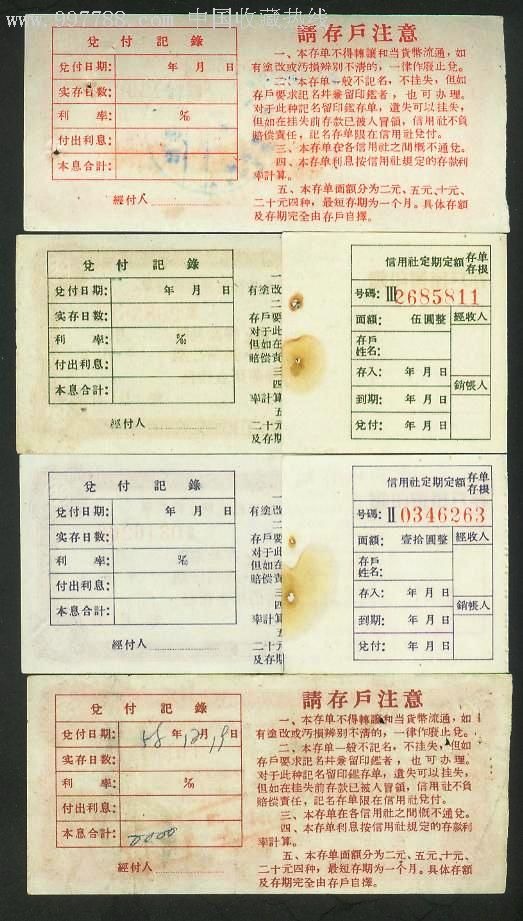 www.997788.com 中国收藏热线
兌付記錄
兌付日期: 年 月 日
实存日数:
利 率: ‰
付出利息:
本息合計:
經付人
請存戶注意
一、本存单不得轉讓和当貨幣流通，如
有塗改或污損辨别不清的，一律作廢止兌。
二、本存单一般不記名，不挂失，但如
存戶要求記名幷兼留印鑑者，也可办理。
对于此种記名留印鑑存单，遺失可以挂失，
但如在挂失前存款已被人冒領，信用社不負
賠偿責任，記名存单限在信用社兌付。
三、本存单在各信用社之間概不通兌。
四、本存单利息按信用社規定的存款利
率計算。
五、本存单面額分为二元、五元、十元、
二十元四种，最短存期为一个月。具体存額
及存期完全由存戶自擇。
兌付記錄
兌付日期: 年 月 日
实存日数:
利 率: ‰
付出利息:
本息合計:
經付人
一
有塗改
二
存戶要
对于此
但如在
賠偿責
三
四
率計算
五
二十元
及存期
信用社定期定額存单存根
号碼: III2685811
面額: 伍圓整
經收人
存戶
姓名:
存入: 年 月 日
銷帳人
到期: 年 月 日
兌付: 年 月 日
兌付記錄
兌付日期: 年 月 日
实存日数:
利 率: ‰
付出利息:
本息合計:
經付人
一
有塗改
二
存戶要
对于此
但如在
賠偿責
三
四
率計算
五
二十元
及存期
信用社定期定額存单存根
号碼: II0346263
面額: 壹拾圓整
經收人
存戶
姓名:
存入: 年 月 日
銷帳人
到期: 年 月 日
兌付: 年 月 日
兌付記錄
兌付日期: 58年12月19日
实存日数:
利 率: ‰
付出利息:
本息合計:
經付人
請存戶注意
一、本存单不得轉讓和当貨幣流通，如
有塗改或污損辨别不清的，一律作廢止兌。
二、本存单一般不記名，不挂失，但如
存戶要求記名幷兼留印鑑者，也可办理。
对于此种記名留印鑑存单，遺失可以挂失，
但如在挂失前存款已被人冒領，信用社不負
賠偿責任，記名存单限在信用社兌付。
三、本存单在各信用社之間概不通兌。
四、本存单利息按信用社規定的存款利
率計算。
五、本存单面額分为二元、五元、十元、
二十元四种，最短存期为一个月。具体存額
及存期完全由存戶自擇。